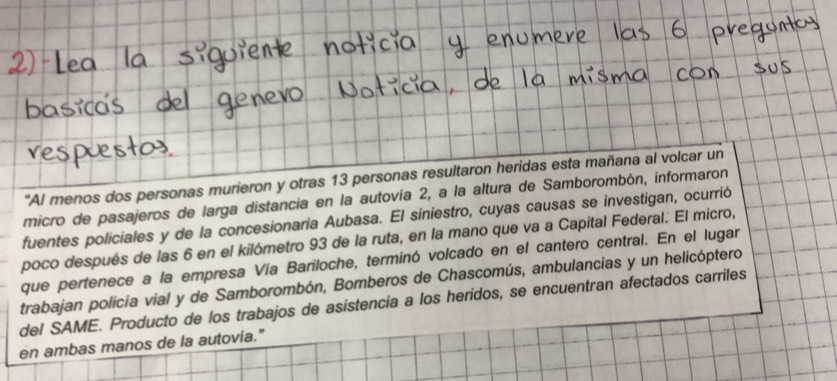 2) Lea la siguiente noticia y enumere las 6 preguntas
basicas del genero Noticia, de la misma con sus
respuestas.
"Al menos dos personas murieron y otras 13 personas resultaron heridas esta mañana al volcar un
micro de pasajeros de larga distancia en la autovía 2, a la altura de Samborombón, informaron
fuentes policiales y de la concesionaria Aubasa. El siniestro, cuyas causas se investigan, ocurrió
poco después de las 6 en el kilómetro 93 de la ruta, en la mano que va a Capital Federal. El micro,
que pertenece a la empresa Vía Bariloche, terminó volcado en el cantero central. En el lugar
trabajan policía vial y de Samborombón, Bomberos de Chascomús, ambulancias y un helicóptero
del SAME. Producto de los trabajos de asistencia a los heridos, se encuentran afectados carriles
en ambas manos de la autovía."